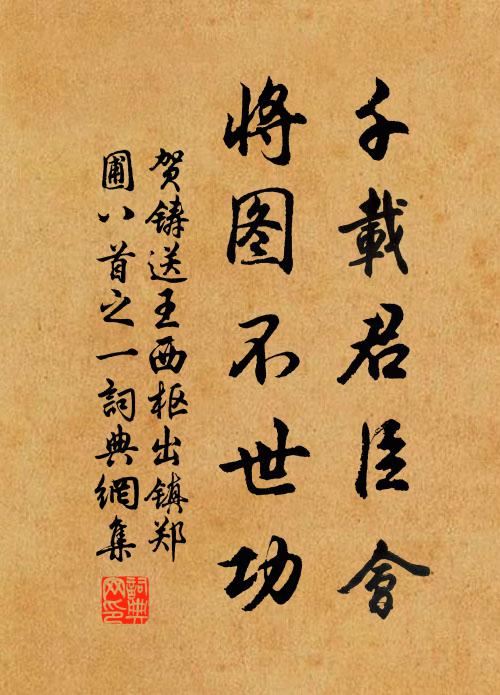 千載君臣會
將图不世功
贺鑄送王西枢出镇郑
圃八首之一詞典網集
詞典
网印